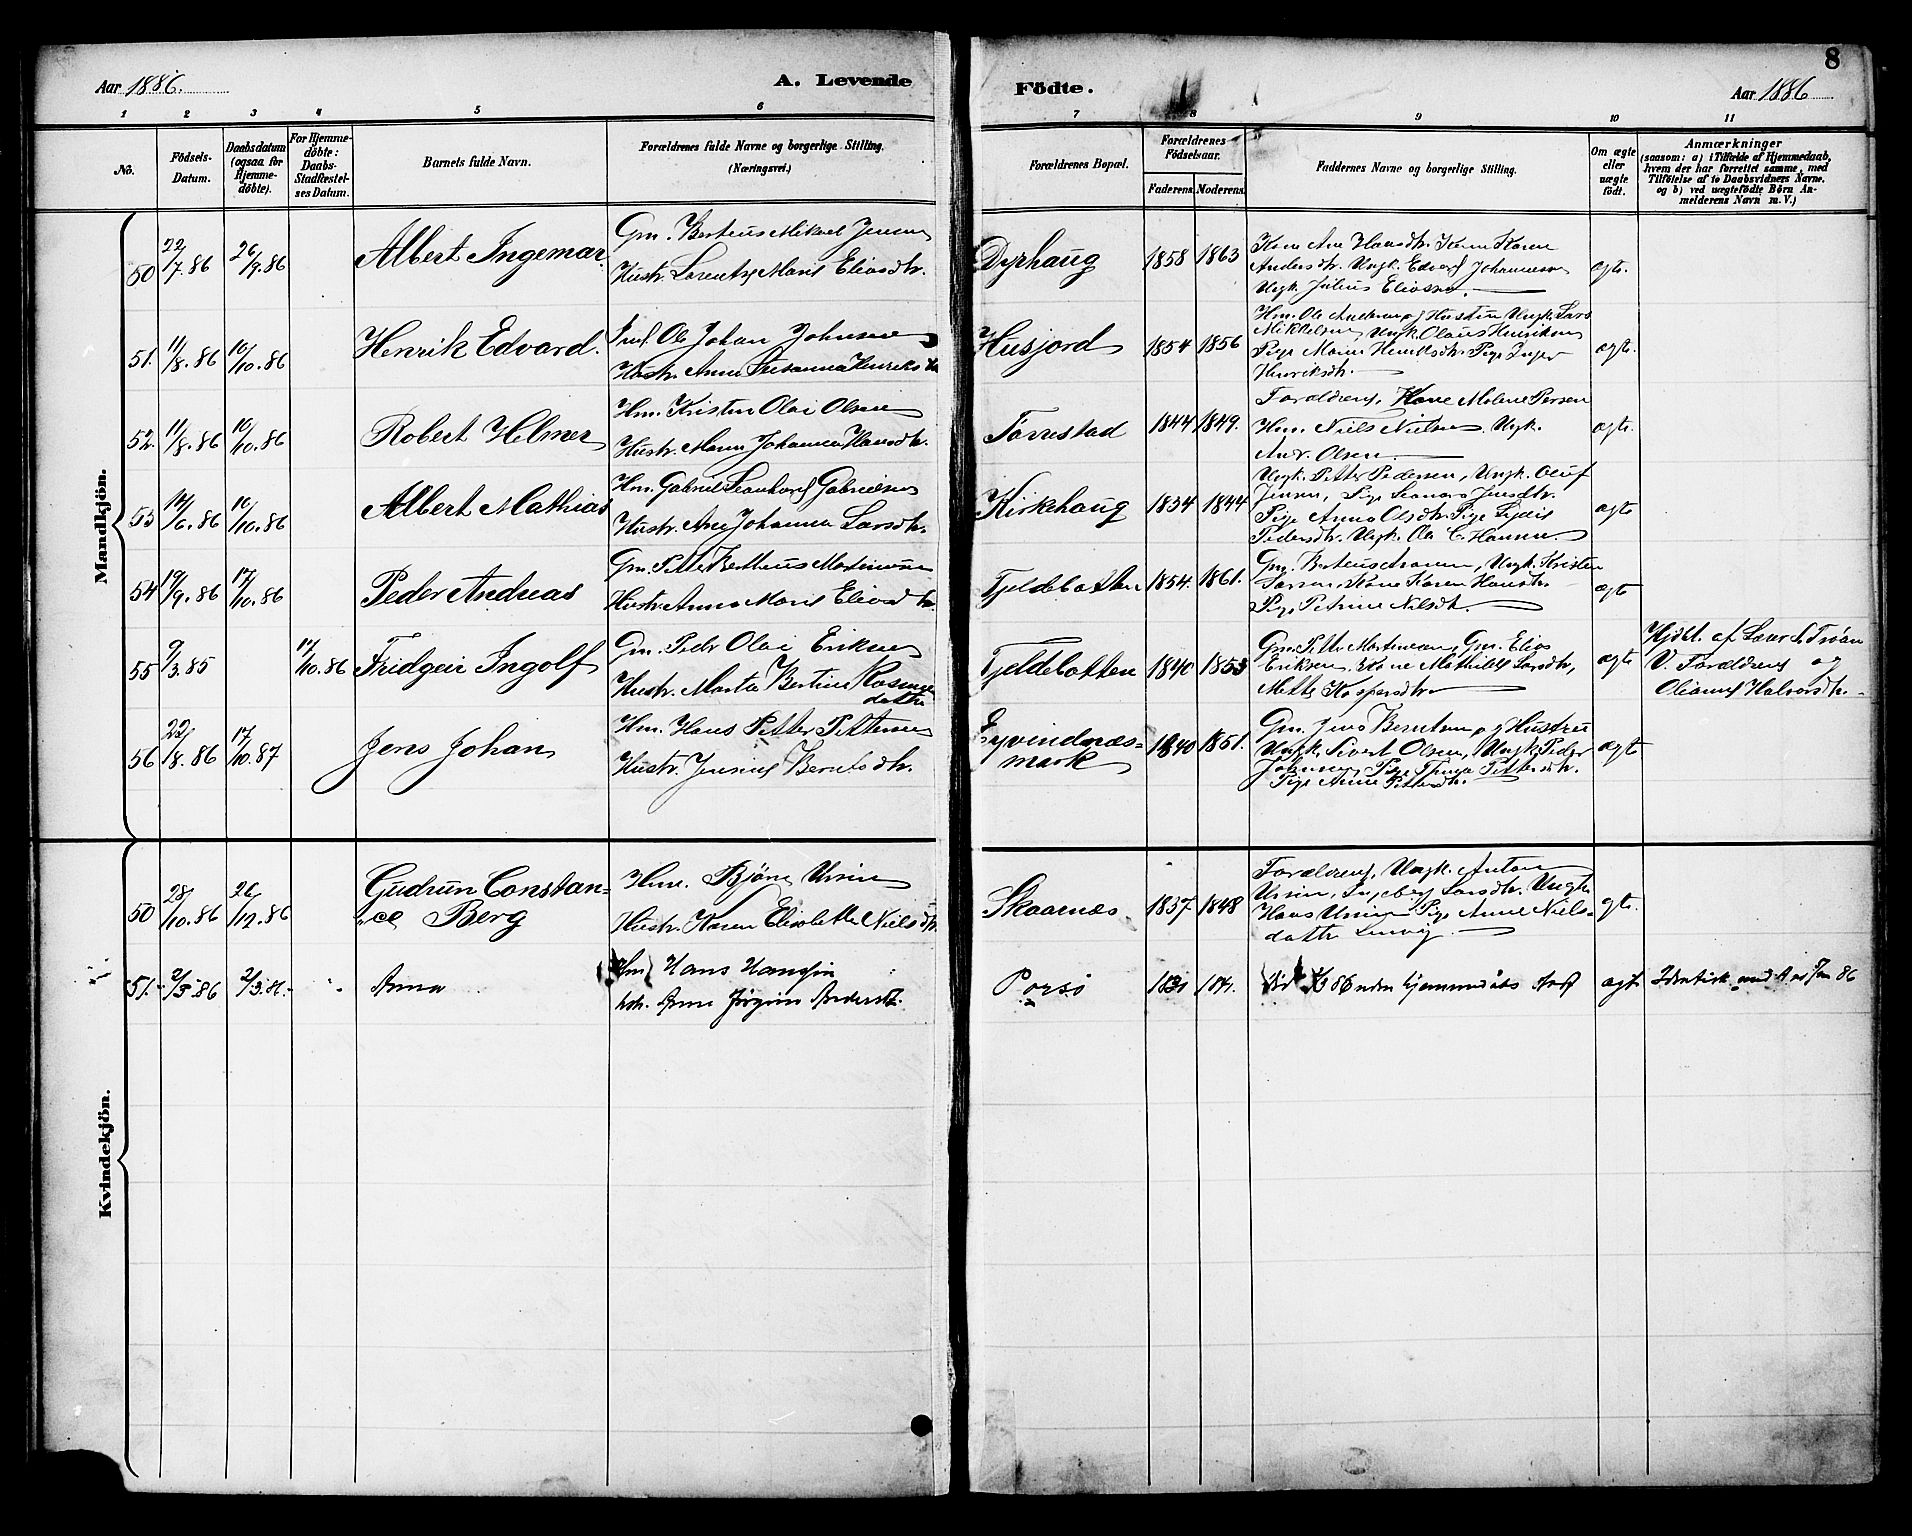 8
Aar 1886.
A. Levende
Födte.
Aar 1886
1 2 3 4 5 6 7 8 9 10 11
No.
Födsels-Datum.
Daabsdatum (ogsaa for Hjemmedöbte).
For Hjemmedöbte: Daabs-Stadfæstelses Datum.
Barnets fulde Navn.
Forældrenes fulde Navne og borgerlige Stilling.
(Næringsvei.)
Forældrenes Bopæl.
Forældrenes Födselsaar.
Faderens. Moderens.
Faddernes Navne og borgerlige Stilling.
Om ægte eller uægte födt.
Anmærkninger
(saasom: a) i Tilfælde af Hjemmedaab,
hvem der har forrettet samme, med
Tilföielse af to Daabsvidners Navne.
og b) ved uægtefödte Börn An-
melderens Navn m. V.)
Mandkjön.
50 22/7.86 26/9.86 Albert Ingemar.
Gm. Berteus Mikael Jensen
Hustr. Lorentze Marie Eliasdtr.
Dyrhaug 1858 1863
Kone Ane Hansdtr. Kone Karen
Andersdtr. Ungk. Edvard Johannesen
Ungk. Julius Eliassen.
ægte.
51. 11/8.86 10/10.86 Henrik Edvard.
Ole Johan Johnsen
Hustr. Anne Susanna Henriksdtr
Husjord 1854 1856
Hm. Ole Andersen og Hustru Ungk. Lars
Mikkelsen, Ungk. Olaus Henriksen
Pige Maren Henriksdtr. Pige Inger
Henriksdtr.
ægte.
52. 11/8.86 10/10.86 Robert Helmer
Hm. Kristen Olai Olsen
Hustr. Maren Johanna Hansdtr.
Torrestad 1844 1849.
Forældrene, Kone Malene Persen
Hm. Niels Nielsen, Ungk.
And. Olsen.
ægte.
53 14/6.86 10/10.86 Albert Mathias
Hm. Gabriel Leonhard Gabrielsen
Hustr. Ane Johanna Larsdtr.
Kirkehaug 1834 1844
Ungk. Petter Pedersen, Ungk. Oluf
Jensen, Pige Leonora Jensdtr.
Pige Anna Olsdtr. Pige
Pedersdtr. Ungk. Ole C. Hansen.
ægte
54 19/9.86 17/10.86 Peder Andreas
Gm. Petter Bertheus Martinussen
Hustr. Anna Marie Eliasdtr.
Fjeldebotten 1854. 1861.
Gm. Berteus Aronsen, Ungk. Kristen
Larsen, Kone Karen Hansdtr.
Pige Petrine Nilsdtr.
ægte
55 9/3.85 17/10.86 Fridgeir Ingolf
Gm. Peder Olai Eriksen
Hustr. Marta Bertine Rasmus
datter
Fjeldebotten 1840 1853
Gm. Petter Martinussen, Gm. Elias
Eriksen, Kone Mathilde Larsdtr,
Mette Kaspersdtr
ægte
Hjdbt. af
V. Forældrene og
Oleanna Halvorsdtr.
56 22/8.86 17/10.87 Jens Johan
Hm. Hans Petter Pettersen
Hustr. Jensine Berntsdtr.
Eyvindnæs-
mark 1840 1851.
Gm. Jens Berntsen og Hustru
Ungk. Sivert Olsen, Ungk. Peder
Johnsen, Pige Pettersdtr.
Pige Anne Pettersdtr.
ægte
Kvindekjön.
50 28/10.86 26/12.86 Gudrun Constan-
ce Berg
Hm. Bjørn Ursin
Hustr. Karen Elisabeth Nielsdtr.
Skaarnæs 1837. 1848
Forældrene, Ungk. Anton
Ursin, Ingeborg Larsdtr. Ungk.
Hans Ursin Pige Anne Niels-
datter
ægte.
51. 2/3 86 2/3.86. Anna
Hm. Hans Hansen
hstr. Anna Jørgine Andersdtr.
Porsø
hjemmedøbt
ægte
Identisk med 86